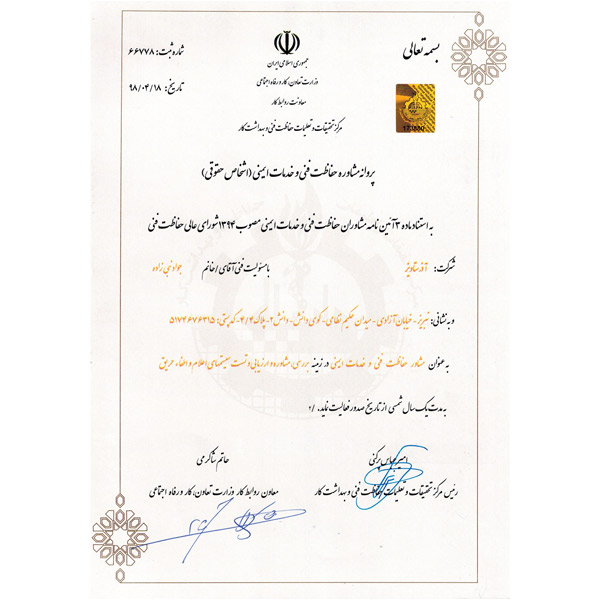 بسمه تعالی
جمهوری اسلامی ایران
وزارت تعاون، کار و رفاه اجتماعی
معاونت روابط کار
مرکز تحقیقات و تعلیمات حفاظت فنی و بهداشت کار
شماره ثبت: ۶۶۷۷۸
تاریخ: ۹۸/۰۴/۱۸
پروانه مشاوره حفاظت فنی و خدمات ایمنی (اشخاص حقوقی)
به استناد ماده ۳ آئین نامه مشاوران حفاظت فنی و خدمات ایمنی مصوب ۱۳۹۴ شورای عالی حفاظت فنی
شرکت: آذر ستاویز با مسئولیت فنی آقای/خانم جواد نبی زاده
و به نشانی: تبریز - خیابان آزادی - میدان حکیم نظامی - کوی دانش - دانش ۲ - پلاک ۴/۴ - کد پستی: ۵۱۷۴۶۷۶۳۱۵
به عنوان مشاور حفاظت فنی و خدمات ایمنی در زمینه بررسی، مشاوره و ارزیابی و تست سیستمهای اعلام و اطفاء حریق
به مدت یک سال شمسی از تاریخ صدور فعالیت نماید. /۲
امیر عباس پرکنی
رئیس مرکز تحقیقات و تعلیمات حفاظت فنی و بهداشت کار
حاتم شاکرمی
معاون روابط کار وزارت تعاون، کار و رفاه اجتماعی